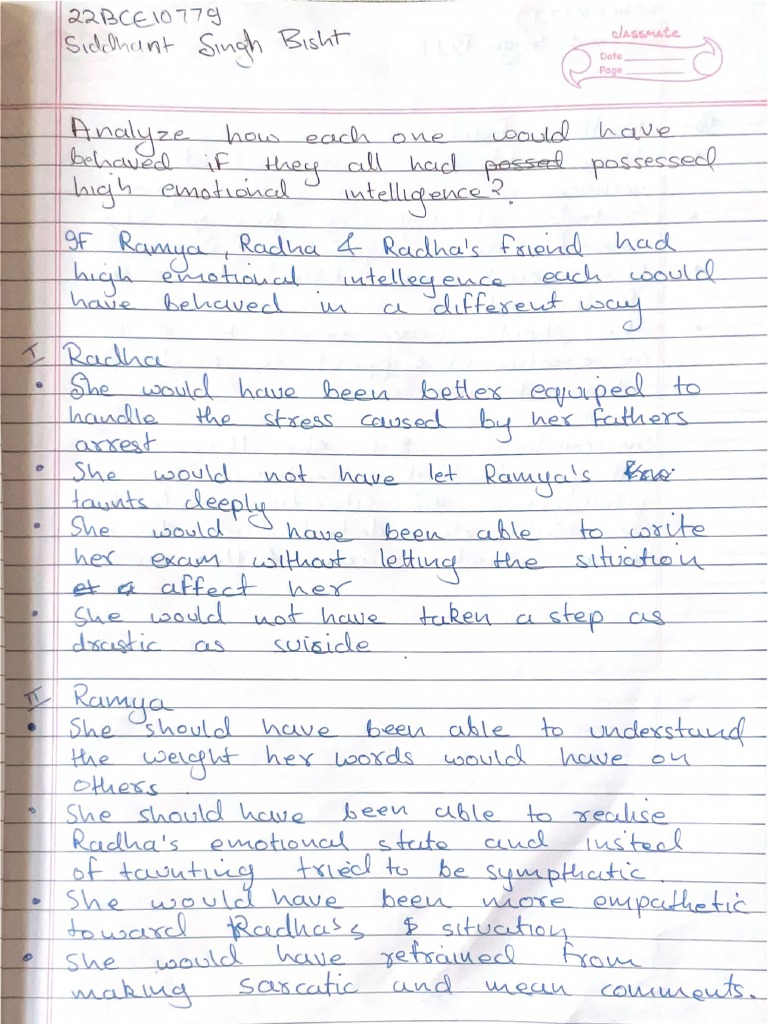 22BCE10779
Siddhant Singh Bisht
classmate
Date
Page
Analyze how each one would have
behaved if they all had possed possessed
high emotional intelligence?
If Ramya, Radha & Radha's friend had
high emotional intellegence each would
have behaved in a different way
I Radha
• She would have been better equiped to
handle the stress caused by her fathers
arrest
• She would not have let Ramya's
taunts deeply
• She would have been able to write
her exam without letting the situation
affect her
• She would not have taken a step as
drastic as suicide
II Ramya
• She should have been able to understand
the weight her words would have on
others
• She should have been able to realise
Radha's emotional state and insted
of taunting tried to be sympthatic.
• She would have been more empathetic
toward Radha's situation
• She would have refrained from
making sarcatic and mean comments.